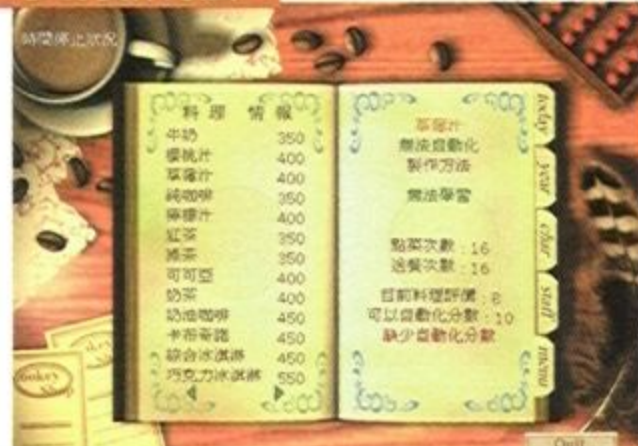 時間停止狀況
料理 情報
牛奶 350
櫻桃汁 400
草莓汁 400
純咖啡 350
檸檬汁 400
紅茶 350
綠茶 350
可可亞 400
奶茶 400
奶油咖啡 450
卡布奇諾 450
綜合冰淇淋 450
巧克力冰淇淋 550
草莓汁
無法自動化
製作方法
無法學習
點菜次數：16
送餐次數：16
目前料理評價：8
可以自動化分數：10
缺少自動化分數
today
year
char
staff
menu
Quit